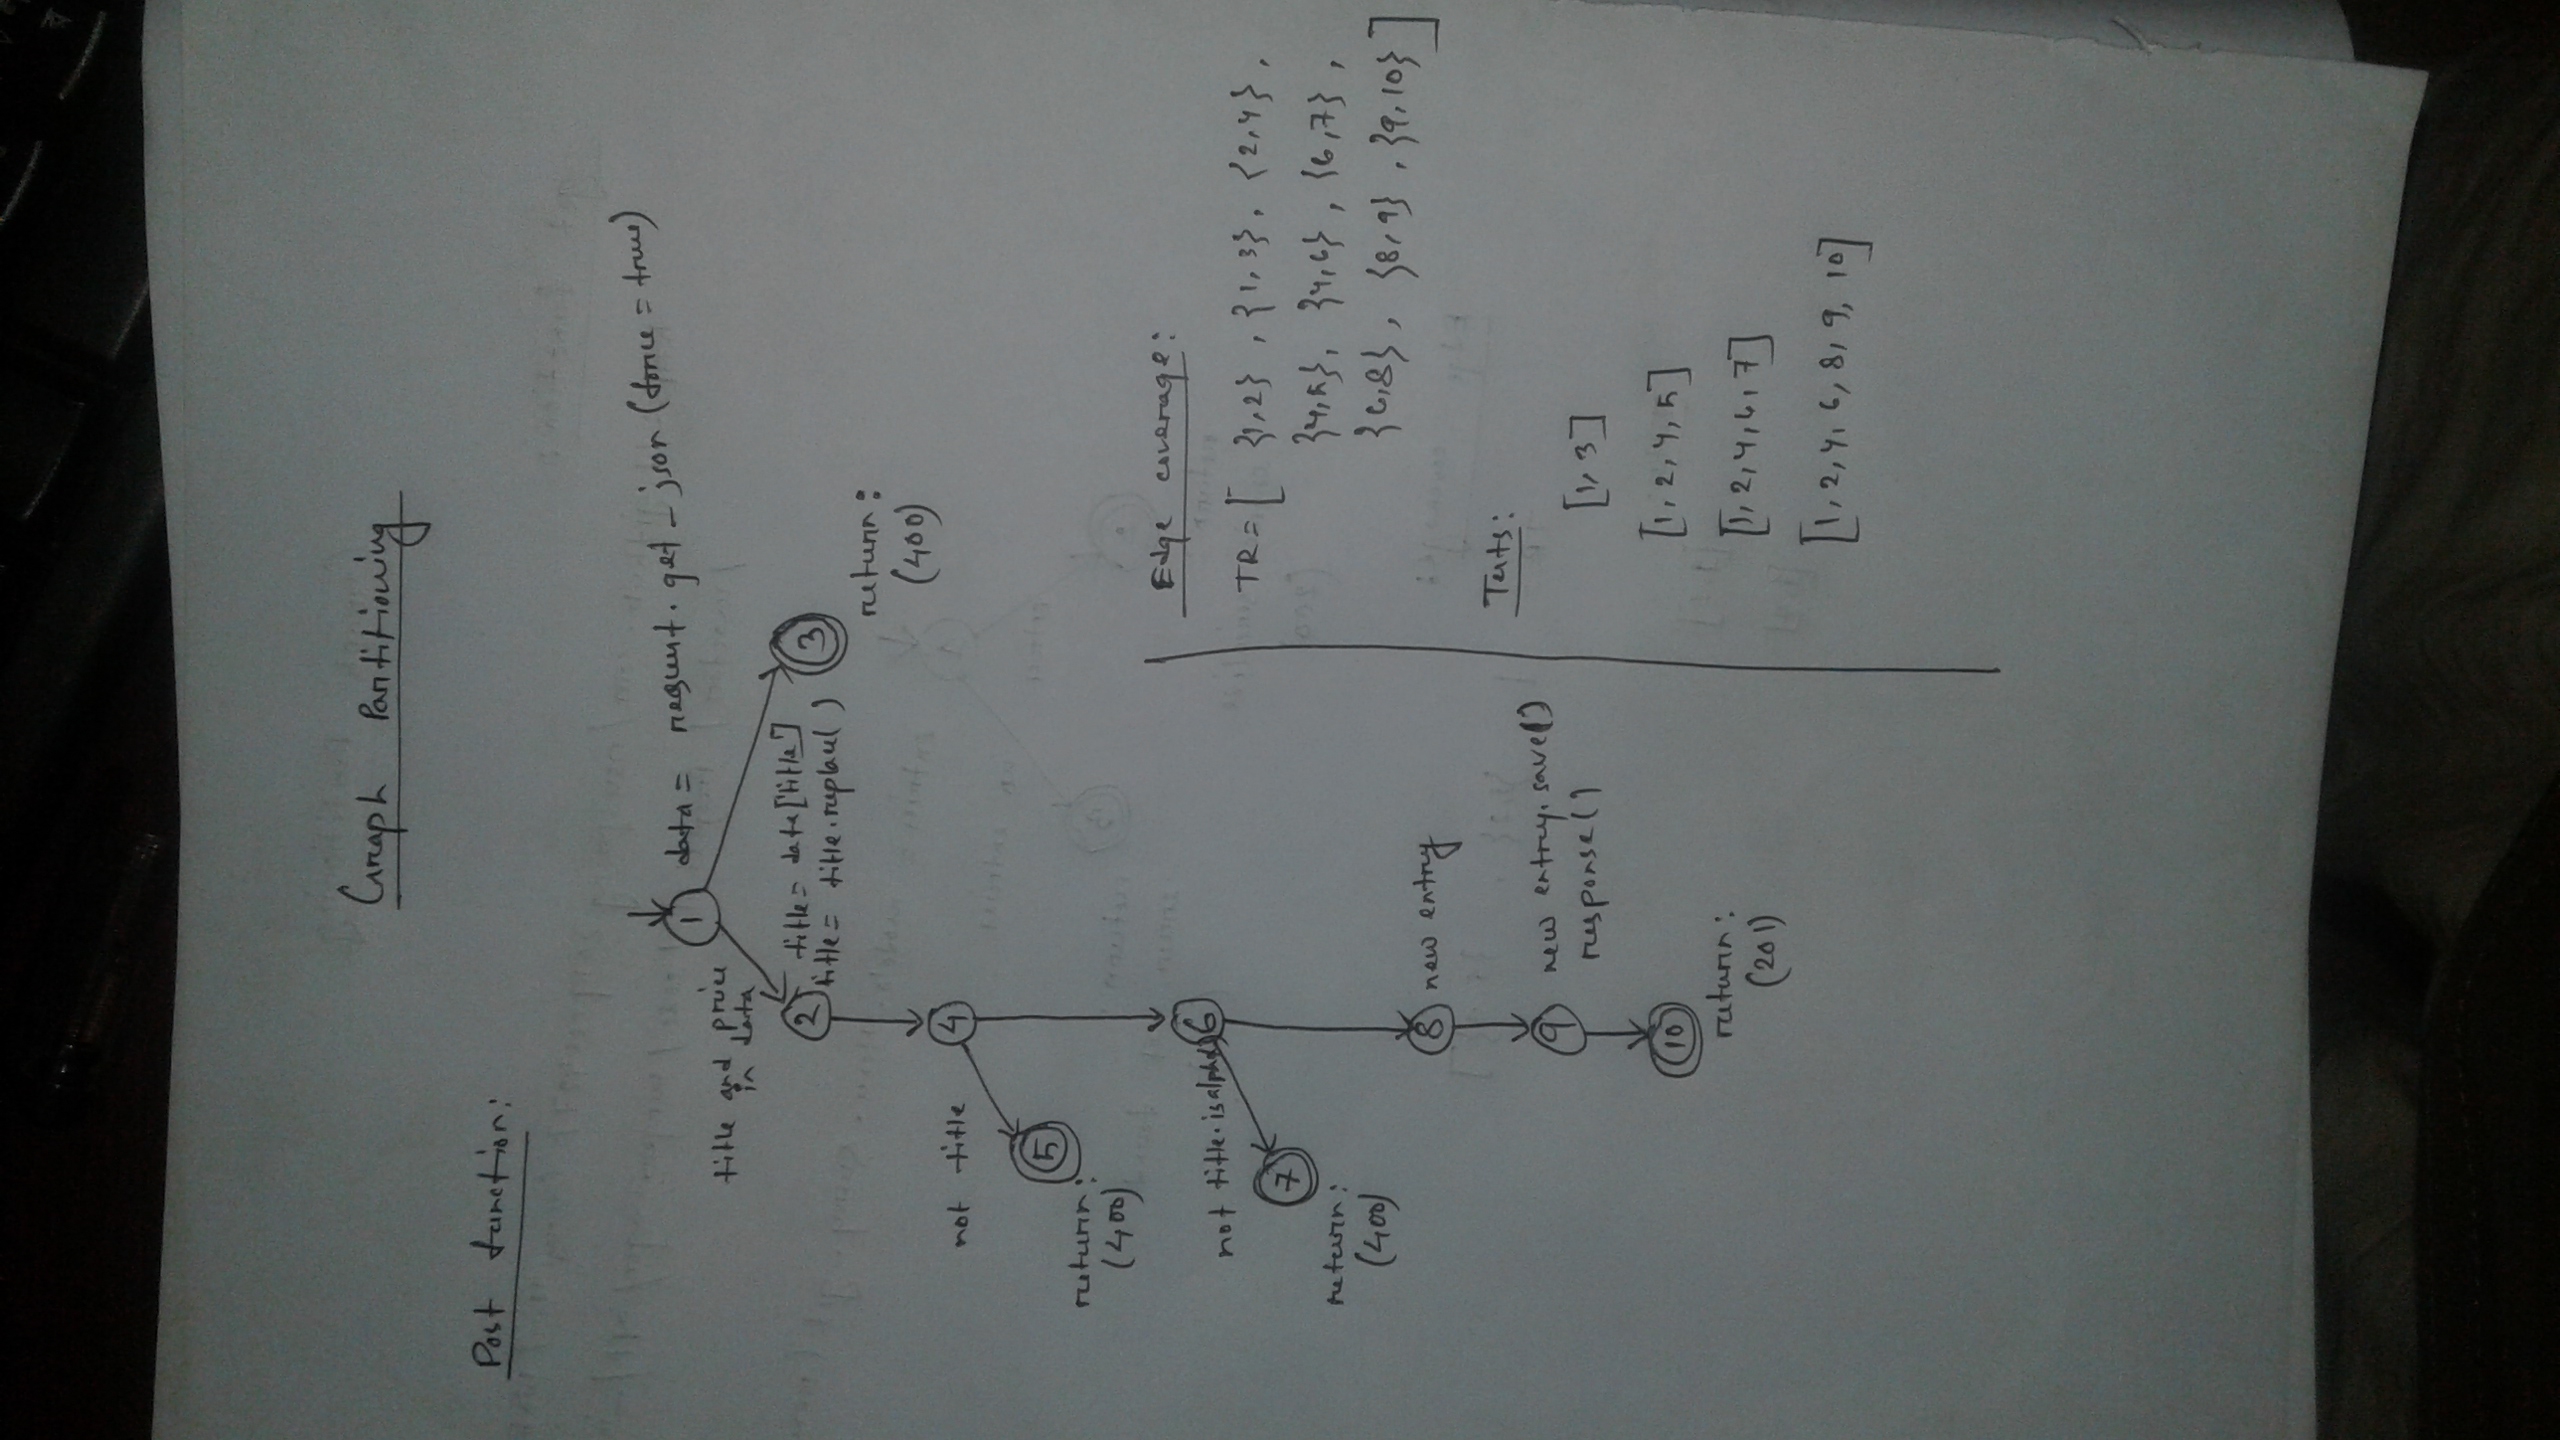 Graph Partitioning
Post function:
1 data = request.get_json (force = true)
title and price
in data
2 title = data['title']
title = title.replace( )
3
return:
(400)
4
not title
5
return:
(400)
6
not title.isalpha()
7
return:
(400)
8 new entry
9 new entry.save()
response()
10
return:
(201)
Edge coverage:
TR = [ {1,2} , {1,3}, {2,4},
{4,5}, {4,6}, {6,7},
{6,8}, {8,9}, {9,10} ]
Tests:
[1, 3]
[1, 2, 4, 5]
[1, 2, 4, 6, 7]
[1, 2, 4, 6, 8, 9, 10]